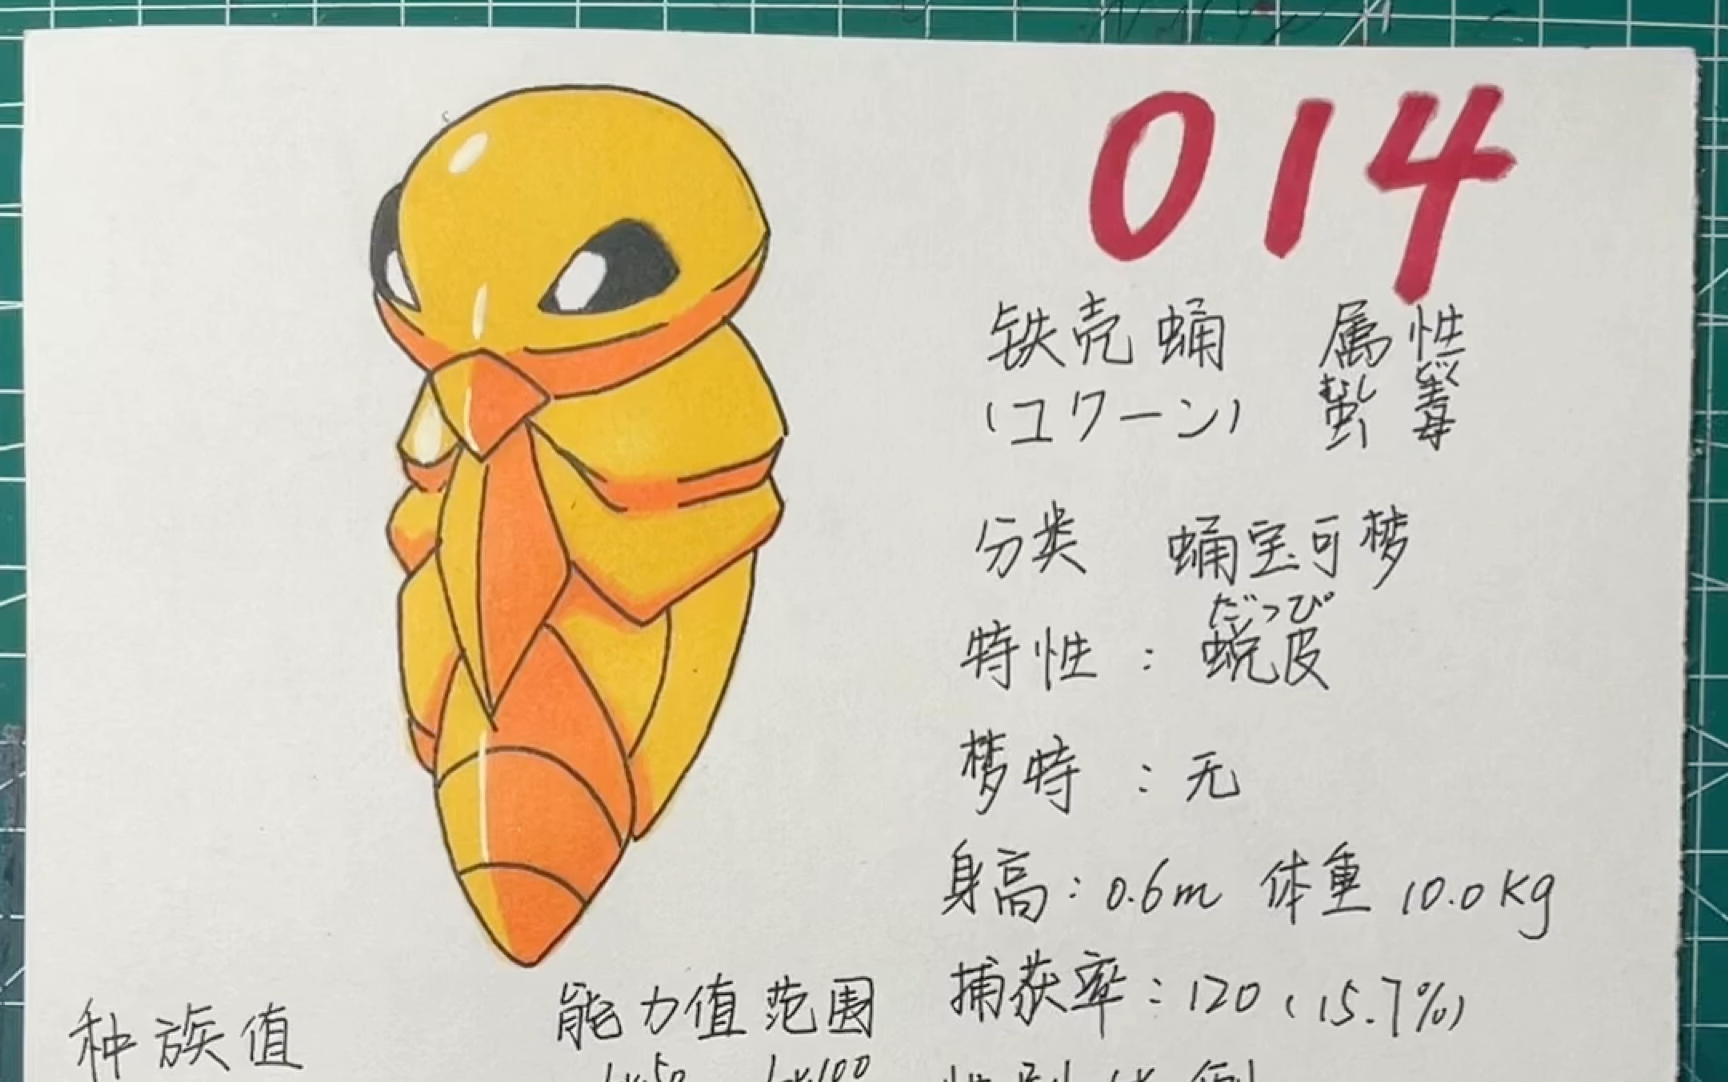 014
铁壳蛹 属性
(コクーン) 虫 毒
むし どく
分类 蛹宝可梦
だっぴ
特性：蜕皮
梦特：无
身高：0.6m 体重 10.0kg
捕获率：120 (15.7%)
种族值 能力值范围
Lv.50 Lv.100